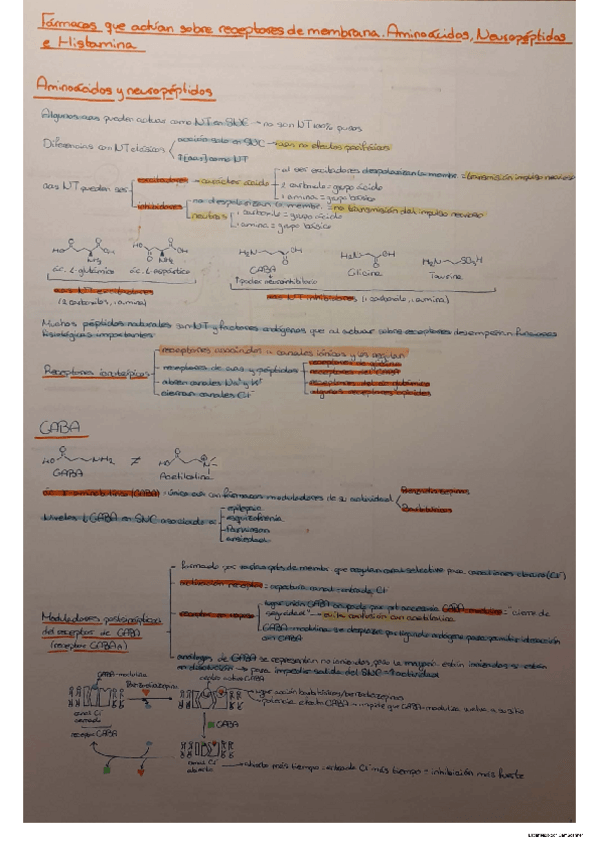 Fármacos que actúan sobre receptores de membrana. Aminoácidos, Neuropéptidos
e Histamina
Aminoácidos y neuropéptidos
Algunos aas pueden actuar como NT en SNC → no son NT 100% puros
Diferencias con NT clásicos
acción solo en SNC → aún no efectos periféricos
↑[aas] como NT
aas NT pueden ser
excitadores → carácter ácido
al ser excitadores despolarizan la membr. = transmisión impulso nervioso
2 carbonilo = grupo ácido
1 amina = grupo básico
inhibidores
no despolarizan la membr. = no transmisión del impulso nervioso
neutros
1 carbonilo = grupo ácido
1 amina = grupo básico
ác. L-glutámico
ác. L-aspártico
GABA
Glicina
Taurina
aas NT excitadores
(2 carbonilos, 1 amina)
aas NT inhibidores (1 carbonilo, 1 amina)
Muchos péptidos naturales son NT y factores endógenos que al actuar sobre receptores desempeñan funciones
fisiológicas importantes
Receptores ionotrópicos
receptores asociados a canales iónicos y los regulan
receptores de aas y péptidos
receptores de glicina
receptores del GABA
receptores del ác glutámico
algunos receptores opioides
abren canales Na⁺ y K⁺
cierran canales Cl⁻
GABA
GABA
≠
Acetilcolina
ác γ-aminobutírico (GABA) = único aa con fármacos moduladores de su actividad
Benzodiazepinas
Barbitúricos
Niveles ↓GABA en SNC asociado a:
epilepsia
esquizofrenia
Parkinson
ansiedad
Moduladores postsinápticos
del receptor de GABA
(receptor GABA A)
formado por varias prots de membr. que regulan canal selectivo para
activación receptor = apertura canal = entrada Cl⁻
receptor en reposo
lugar unión GABA ocupado por prot accesoria GABA-modulina = "cierre de
seguridad" → evita confusión con acetilcolina
GABA-modulina se desplaza
con GABA
GABA-modulina
Benzodiazepina
canal Cl⁻
cerrado
receptor GABA
GABA
lugar unión barbitúricos/benzodiazepinas
potencia efecto GABA → impide que GABA-modulina vuelva a su sitio
canal Cl⁻
abierto
abierto más tiempo = entrada Cl⁻ más tiempo = inhibición más fuerte